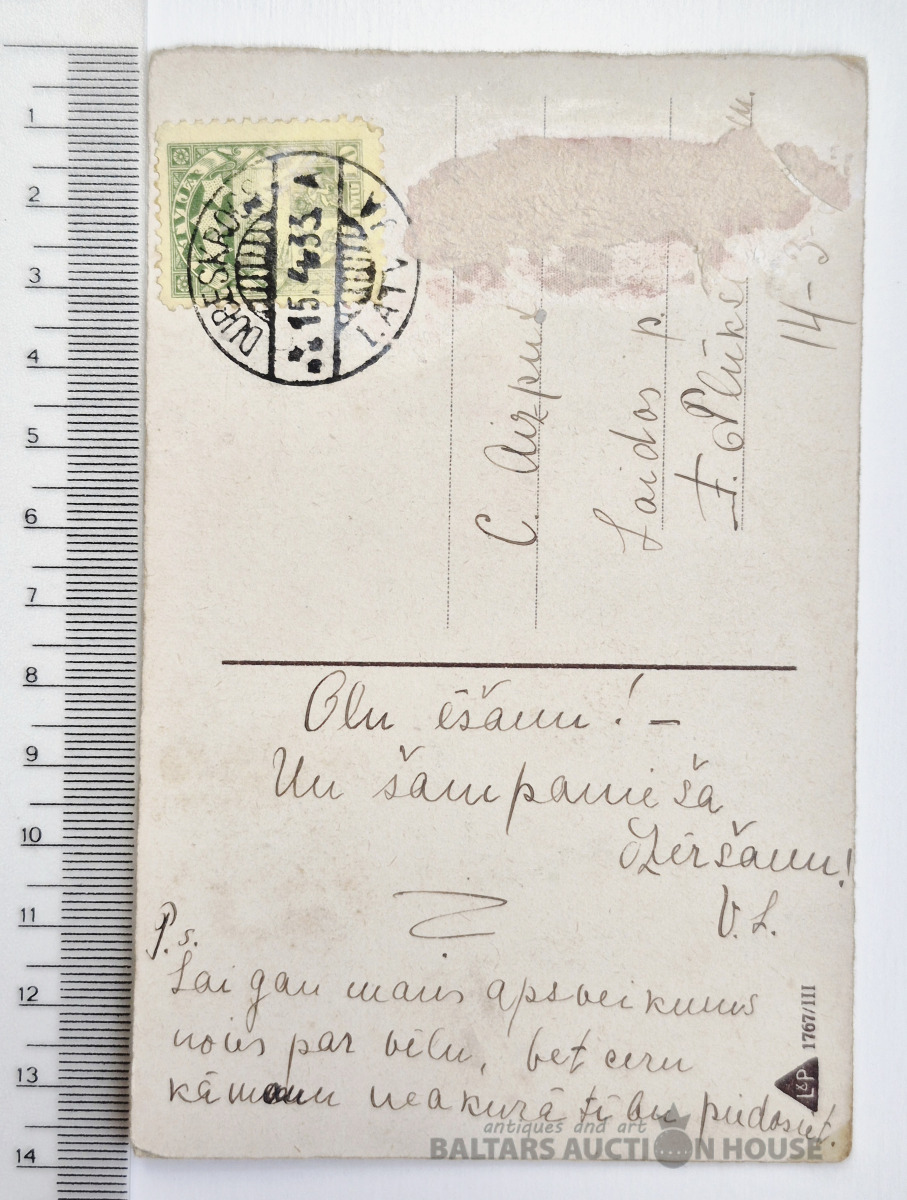 LATVIJA
DUBESKROGS
15. 4. 33
LATV
C. Aizpu
Laidos p.
F. Plūks
14-3
Olu ēšanu! —
Un šampanieša
Dzēršanu!
V. L.
P.s.
Lai gan mans apsveikums
noies par vēlu, bet ceru
ka manu neakurātību piedosiet.
L&P 1767/III
antiques and art
BALTARS AUCTION HOUSE
1
2
3
4
5
6
7
8
9
10
11
12
13
14